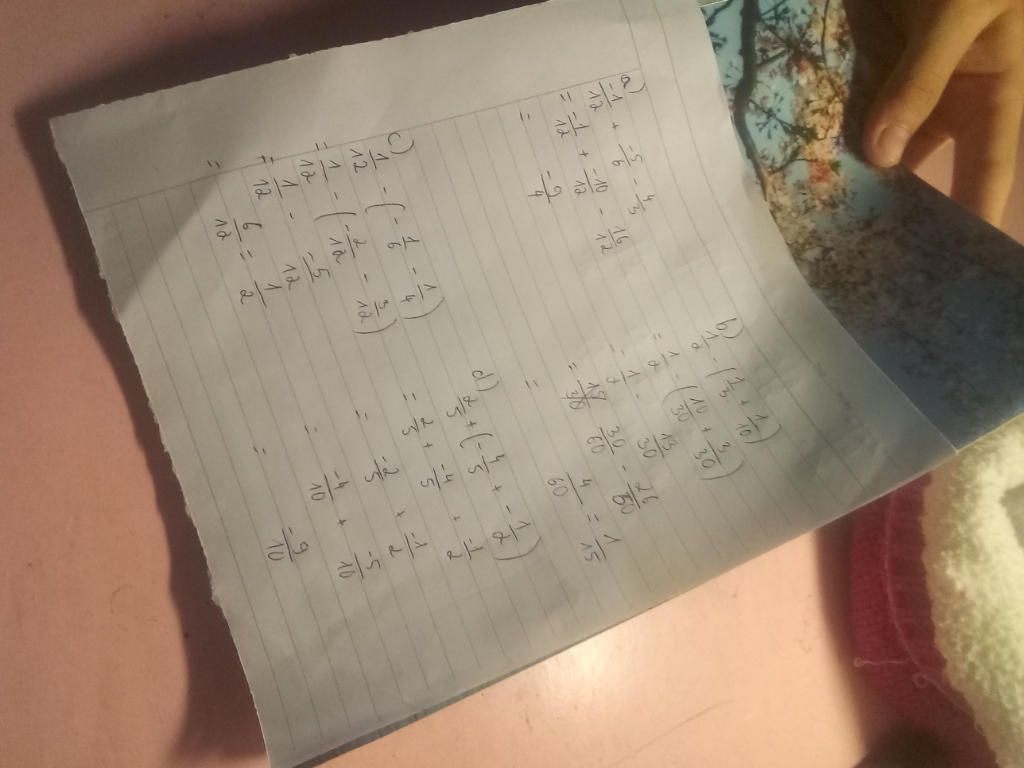 a) -1/12 + -5/6 - 4/3
= -1/12 + -10/12 - 16/12
= -9/4
b) 1/2 - (1/3 + 1/10)
= 1/2 - (10/30 + 3/30)
= 1/2 - /30
= 15/30 30/60 - 26/60
= 4/60 = 1/15
c) 1/12 - (-1/6 - 1/4)
= 1/12 - (-2/12 - 3/12)
= 1/12 - -5/12
= 6/12 = 1/2
d) 2/5 + (-4/5 + -1/2)
= 2/5 + -4/5 + -1/2
= -2/5 + -1/2
= -4/10 + -5/10
= -9/10